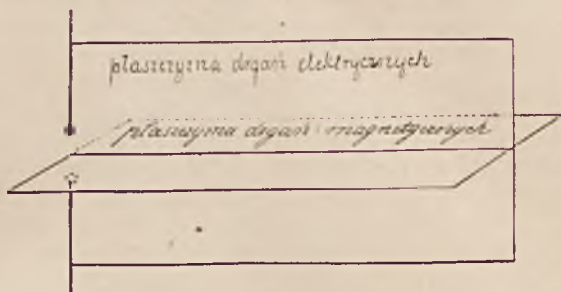 płaszczyzna drgań elektrycznych
płaszczyzna drgań magnetycznych